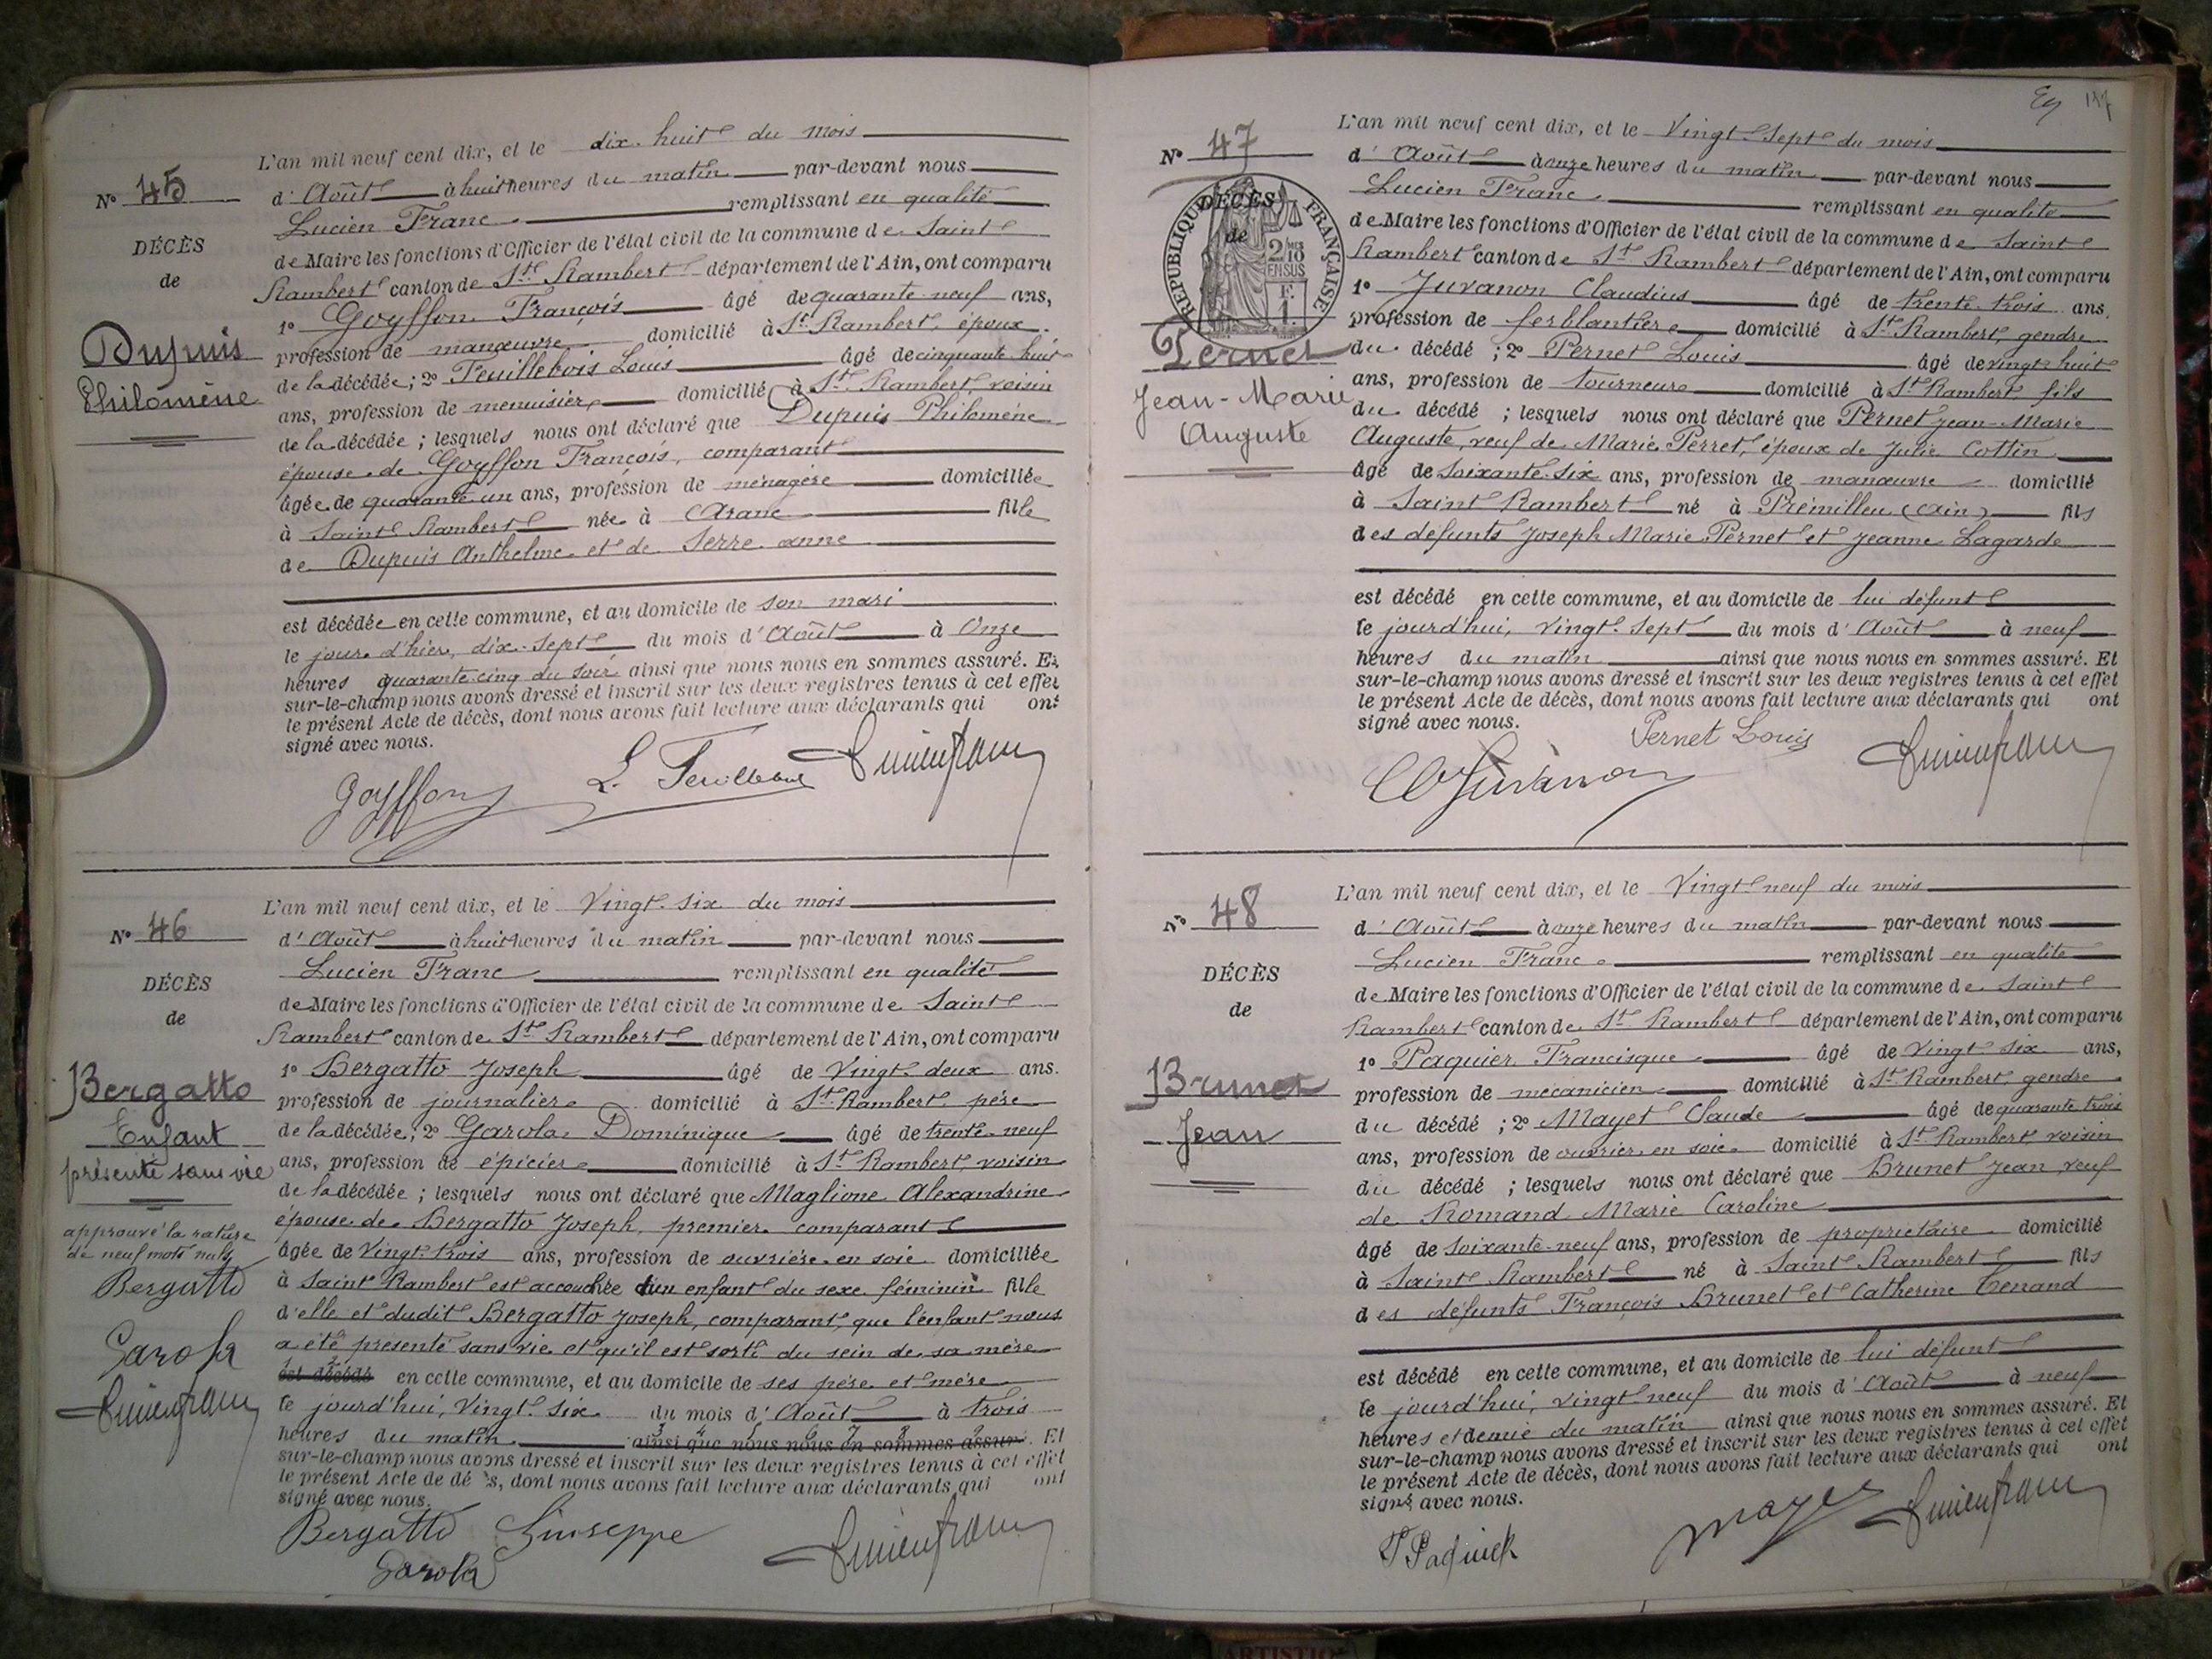 L'an mil neuf cent dix, et le dix-huit du mois
N° 45
d'Août à huit heures du matin par-devant nous
Lucien Franc remplissant en qualité
DÉCÈS
de Maire les fonctions d'Officier de l'état civil de la commune de Saint
de
Rambert canton de St Rambert département de l'Ain, ont comparu
1° Goyffon François âgé de quarante-neuf ans,
Dupuis
profession de manœuvre domicilié à St Rambert, époux
Philomène
de la décédée; 2° Feuillebois Louis âgé de cinquante huit
ans, profession de menuisier domicilié à St Rambert voisin
de la décédée; lesquels nous ont déclaré que Dupuis Philomène
épouse de Goyffon François, comparant
âgée de quarante un ans, profession de ménagère domiciliée
à Saint Rambert née à Arane fille
de Dupuis Anthelme et de Serre Anne
est décédée en cette commune, et au domicile de son mari
le jour d'hier, dix-sept du mois d'Août à Onze
heures quarante-cinq du soir ainsi que nous nous en sommes assuré. Et
sur-le-champ nous avons dressé et inscrit sur les deux registres tenus à cet effet
le présent Acte de décès, dont nous avons fait lecture aux déclarants qui ont
signé avec nous.
Goyffon L. Feuillebois Lucien Franc
L'an mil neuf cent dix, et le Vingt-six du mois
N° 46
d'Août à huit heures du matin par-devant nous
Lucien Franc remplissant en qualité
DÉCÈS
de Maire les fonctions d'Officier de l'état civil de la commune de Saint
de
Rambert canton de St Rambert département de l'Ain, ont comparu
1° Bergatto Joseph âgé de Vingt-deux ans.
Bergatto
profession de journalier domicilié à St Rambert père
Enfant
de la décédée; 2° Garola Dominique âgé de trente-neuf
présenté sans vie
ans, profession de épicier domicilié à St Rambert, voisin
de la décédée; lesquels nous ont déclaré que Maglione Alexandrine
épouse de Bergatto Joseph, premier comparant
approuvé la rature
de neuf mots nuls
âgée de Vingt-trois ans, profession de ouvrière en soie domiciliée
Bergatto
à Saint Rambert est accouchée d'un enfant du sexe féminin fille
d'elle et dudit Bergatto Joseph, comparant, que l'enfant nous
Garola
a été présenté sans vie et qu'il est sorti du sein de sa mère
1 2
est décédé en cette commune, et au domicile de ses père et mère
Lucien Franc
le jourd'hui, Vingt-six du mois d'Août à trois
3 4 5 6 7 8 9
heures du matin ainsi que nous nous en sommes assuré. Et
sur-le-champ nous avons dressé et inscrit sur les deux registres tenus à cet effet
le présent Acte de dé s, dont nous avons fait lecture aux déclarants qui ont
signé avec nous.
Bergatto Giuseppe
Garola Lucien Franc
L'an mil neuf cent dix, et le Vingt-Sept du mois
N° 47
d'Août à onze heures du matin par-devant nous
Lucien Franc remplissant en qualité
DÉCÈS
de
RÉPUBLIQUE FRANÇAISE
2/10 EN SUS
F. 1.
de Maire les fonctions d'Officier de l'état civil de la commune de Saint
Rambert canton de St Rambert département de l'Ain, ont comparu
1° Juvanon Claudius âgé de trente trois ans.
profession de ferblantier domicilié à St Rambert, gendre
Pernet
du décédé; 2° Pernet Louis âgé de vingt-huit
Jean-Marie
ans, profession de tourneur domicilié à St Rambert fils
Auguste
du décédé; lesquels nous ont déclaré que Pernet Jean-Marie
Auguste, veuf de Marie Perret, époux de Julie Cottin
âgé de Soixante-six ans, profession de manœuvre domicilié
à Saint Rambert né à Prémillieu (Ain) fils
des défunts Joseph Marie Pernet et Jeanne Lagarde
est décédé en cette commune, et au domicile de lui défunt
le jourd'hui, vingt-sept du mois d'Août à neuf
heures du matin ainsi que nous nous en sommes assuré. Et
sur-le-champ nous avons dressé et inscrit sur les deux registres tenus à cet effet
le présent Acte de décès, dont nous avons fait lecture aux déclarants qui ont
signé avec nous.
Cl Juvanon Pernet Louis Lucien Franc
L'an mil neuf cent dix, et le Vingt-neuf du mois
N° 48
d'Août à onze heures du matin par-devant nous
Lucien Franc remplissant en qualité
DÉCÈS
de Maire les fonctions d'Officier de l'état civil de la commune de Saint
de
Rambert canton de St Rambert département de l'Ain, ont comparu
1° Paquier Francisque âgé de Vingt-six ans,
Brunet
profession de mécanicien domicilié à St Rambert, gendre
Jean
du décédé; 2° Mayet Claude âgé de quarante trois
ans, profession de ouvrier en soie domicilié à St Rambert voisin
du décédé; lesquels nous ont déclaré que Brunet Jean veuf
de Romand Marie Caroline
âgé de Soixante-neuf ans, profession de propriétaire domicilié
à Saint Rambert né à Saint Rambert fils
des défunts François Brunet et Catherine Tenand
est décédé en cette commune, et au domicile de lui défunt
le jourd'hui, vingt-neuf du mois d'Août à neuf
heures et demie du matin ainsi que nous nous en sommes assuré. Et
sur-le-champ nous avons dressé et inscrit sur les deux registres tenus à cet effet
le présent Acte de décès, dont nous avons fait lecture aux déclarants qui ont
signé avec nous.
Mayet Lucien Franc
ARTISTIC